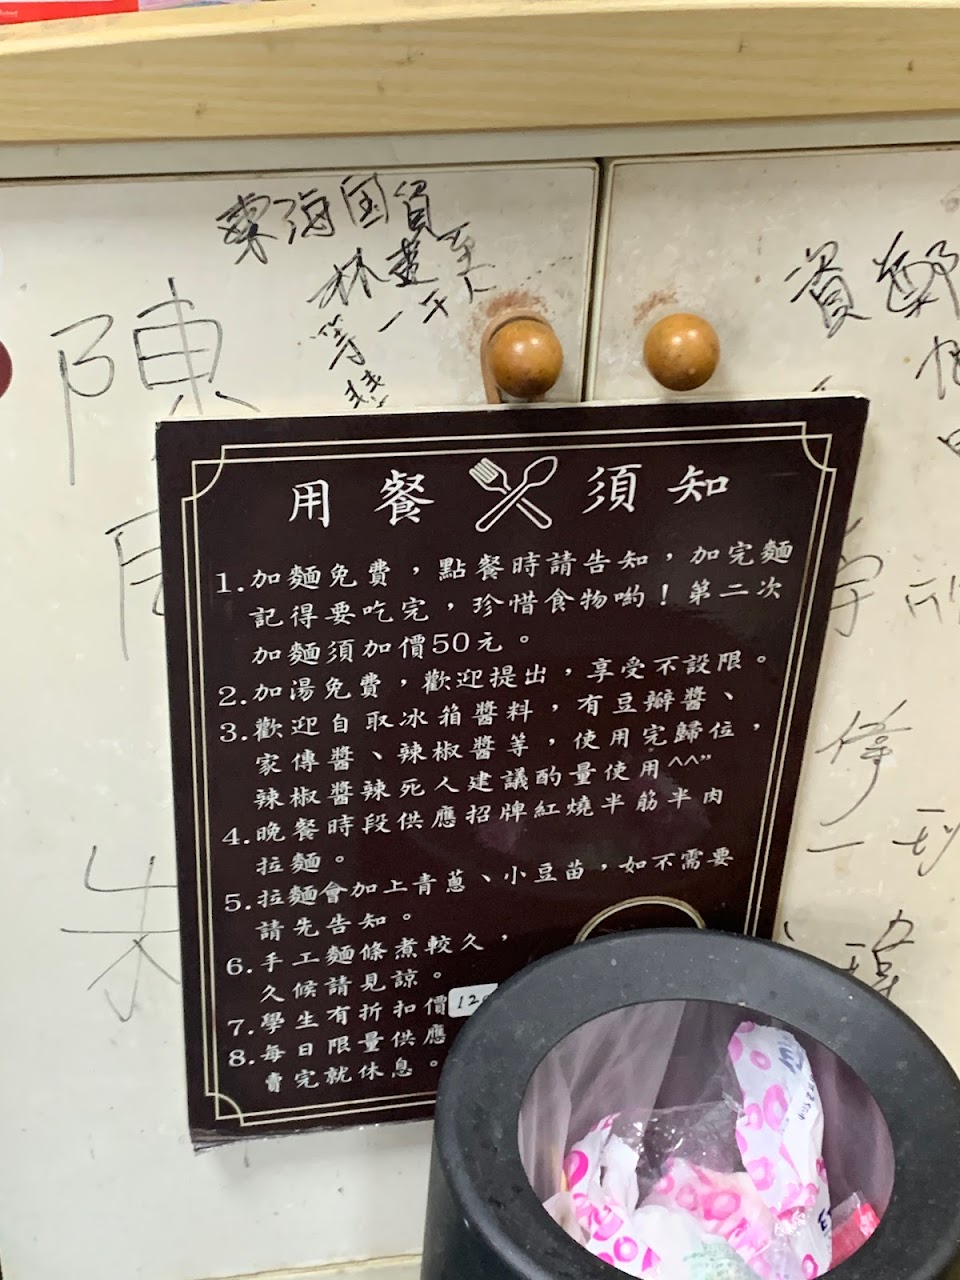 東海国貿
林建
等一千人
陳
用餐須知
1.加麵免費，點餐時請告知，加完麵
記得要吃完，珍惜食物喲！第二次
加麵須加價50元。
2.加湯免費，歡迎提出，享受不設限。
3.歡迎自取冰箱醬料，有豆瓣醬、
家傳醬、辣椒醬等，使用完歸位，
辣椒醬辣死人建議酌量使用^^"
4.晚餐時段供應招牌紅燒半筋半肉
拉麵。
5.拉麵會加上青蔥、小豆苗，如不需要
請先告知。
6.手工麵條煮較久，
久候請見諒。
7.學生有折扣價
8.每日限量供應
賣完就休息。
朱
偉